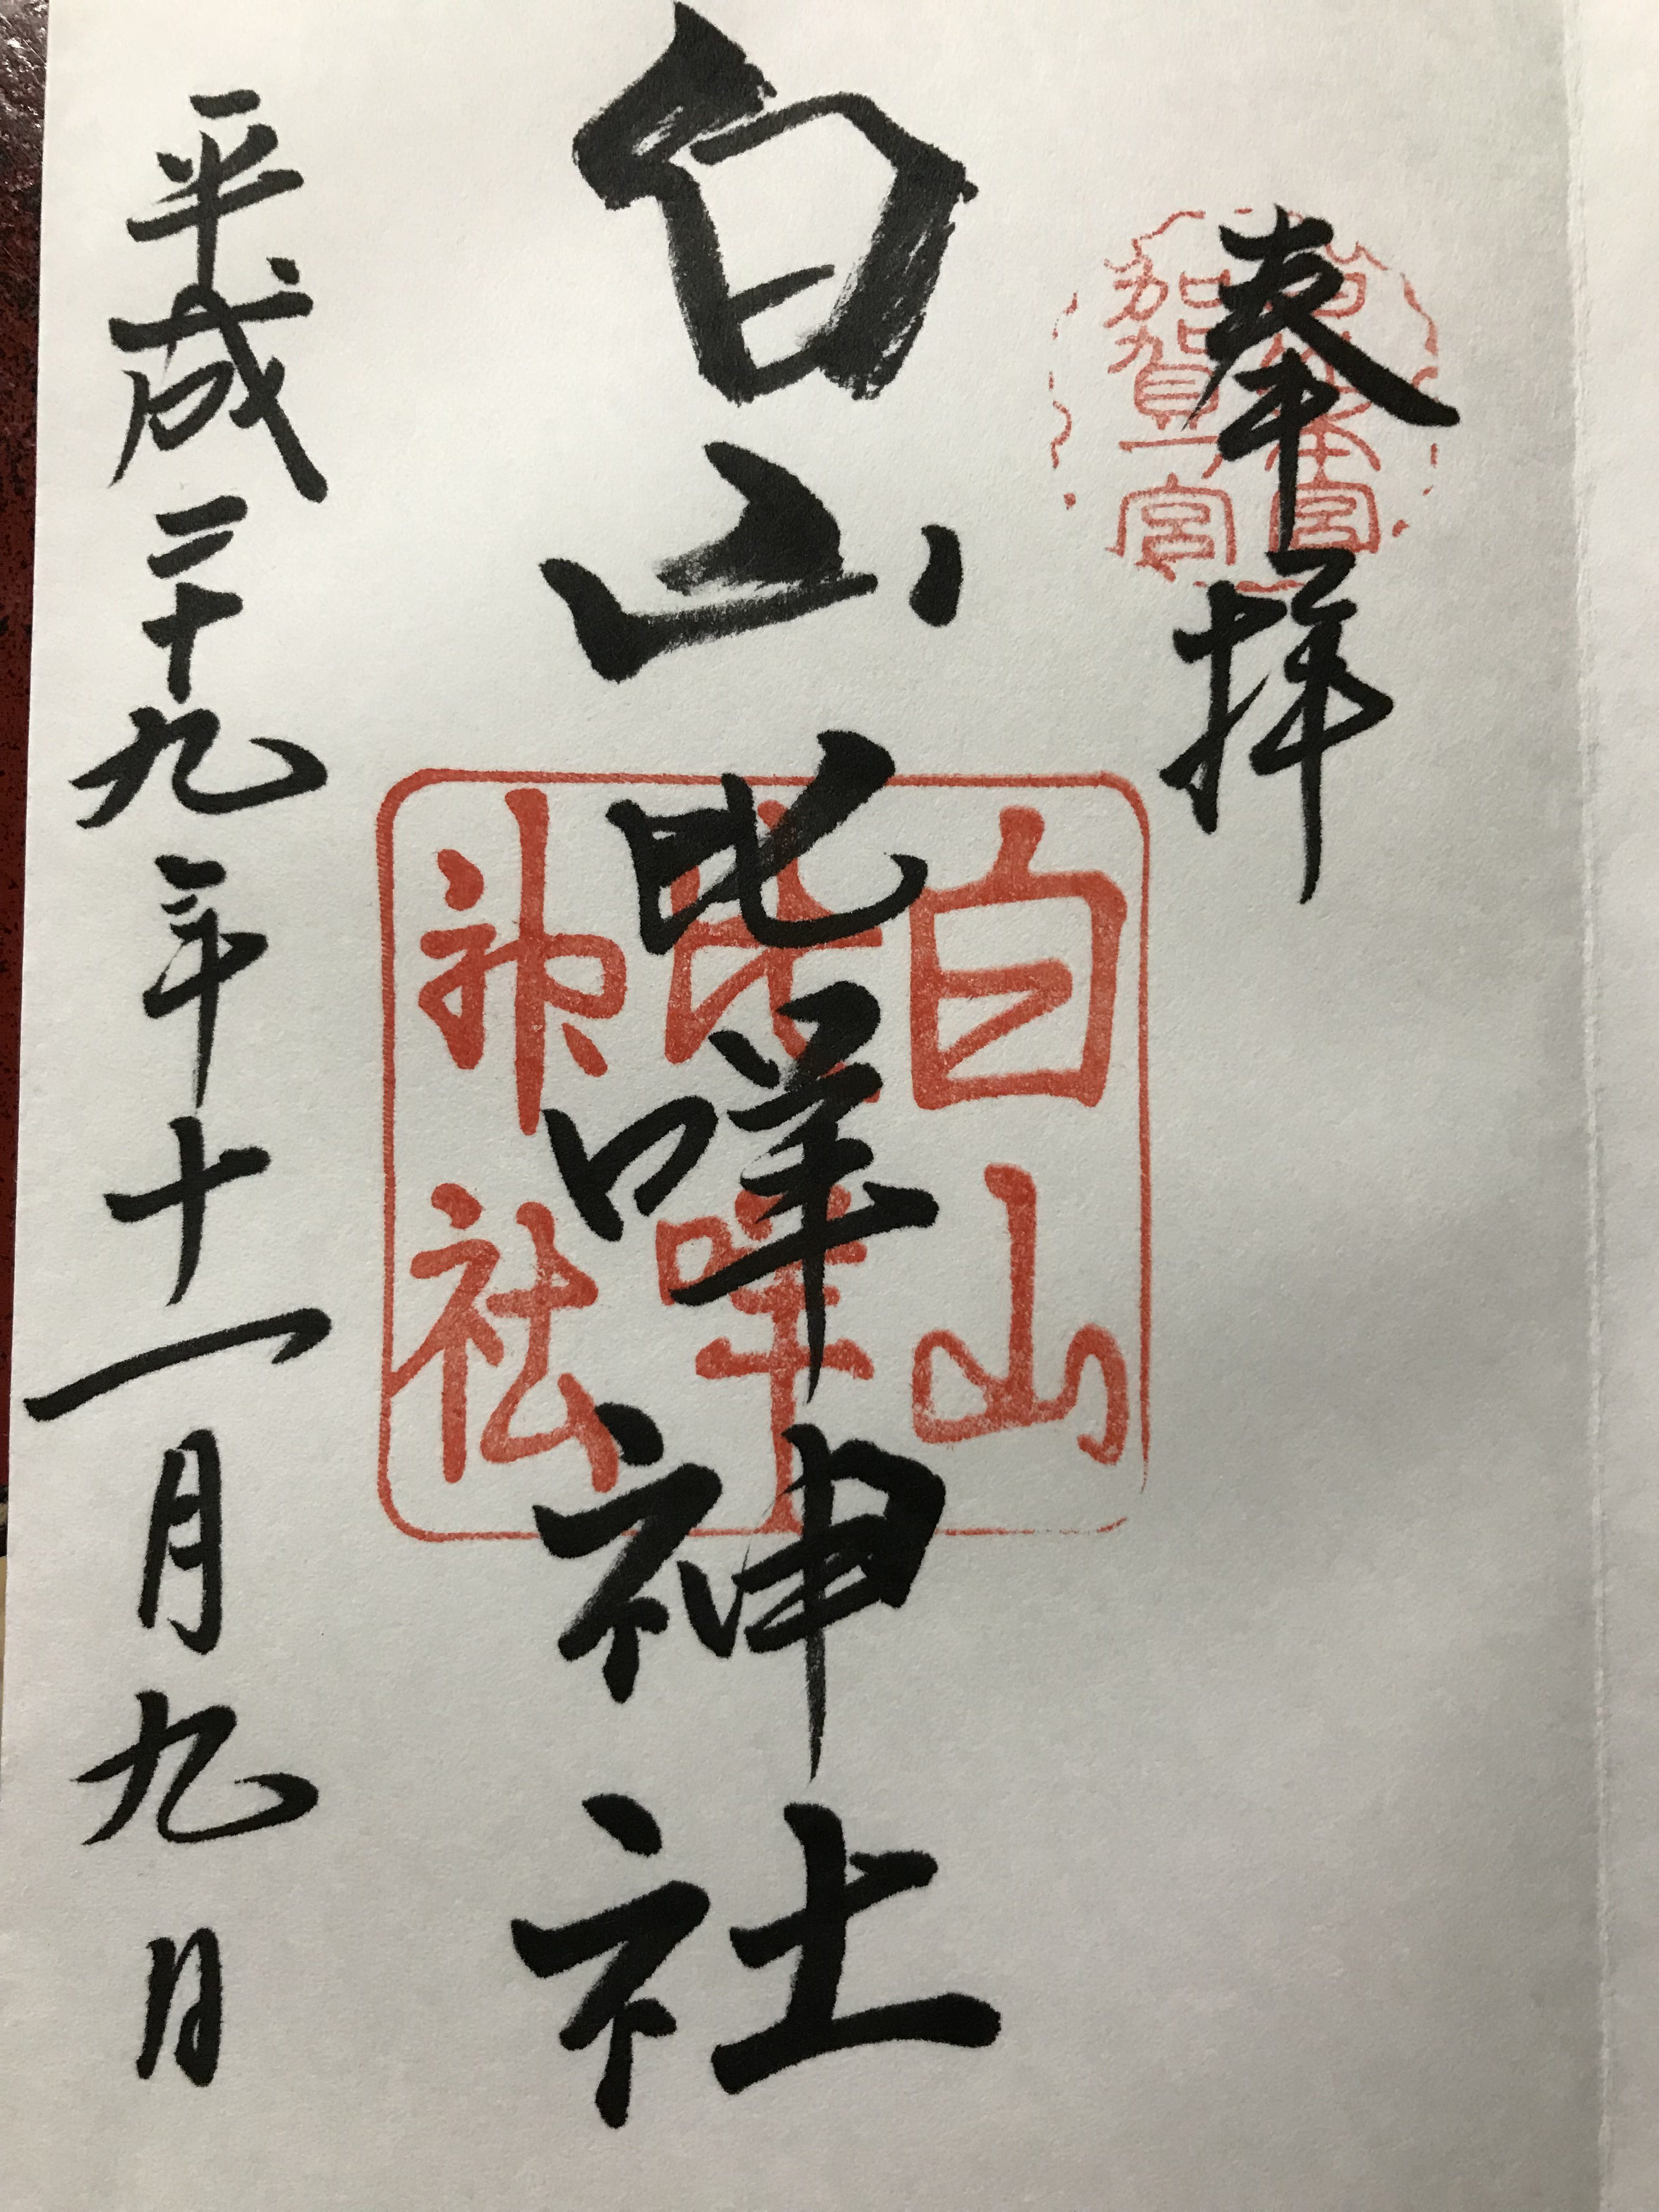 奉拝
加賀一宮
白山比咩神社
白山
比咩
神社
平成二十九年十一月九日